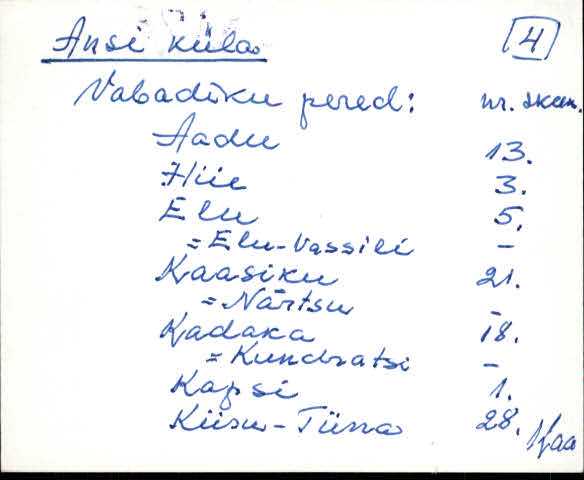 Ansi küla 4
Vabadiku pered: nr. skem.
Aadu 13.
Hiie 3.
Elu 5.
= Elu-Vassili -
Kaasiku 21.
= Närtsu -
Kadaka 18.
= Kundratsi -
Kapsi 1.
Kiisu-Tünna 28.